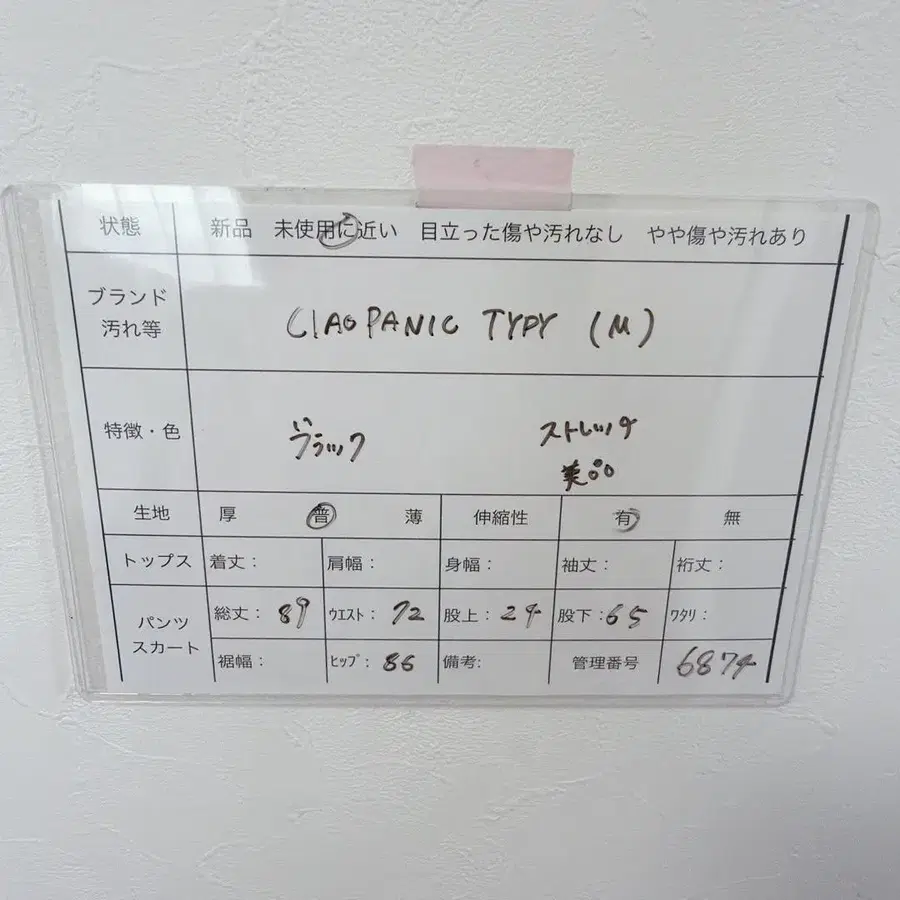 状態 新品 未使用に近い 目立った傷や汚れなし やや傷や汚れあり
ブランド
汚れ等
CIAOPANIC TYPY (M)
特徴・色
ブラック ストレッチ
美品
生地 厚 普 薄 伸縮性 有 無
トップス 着丈: 肩幅: 身幅: 袖丈: 裄丈:
パンツ
スカート
総丈: 89 ウエスト: 72 股上: 24 股下: 65 ワタリ:
裾幅: ヒップ: 86 備考: 管理番号 6874